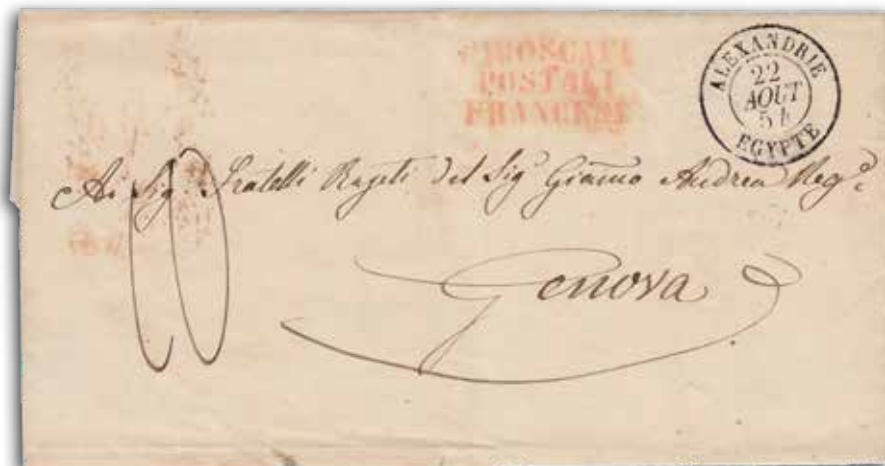 PIROSCAFI
POSTALI
FRANCESI
ALEXANDRIE
22
AOUT
54
EGYPTE
Ai Sig.ri Fratelli del Sig.r Giacmo Andrea
Genova